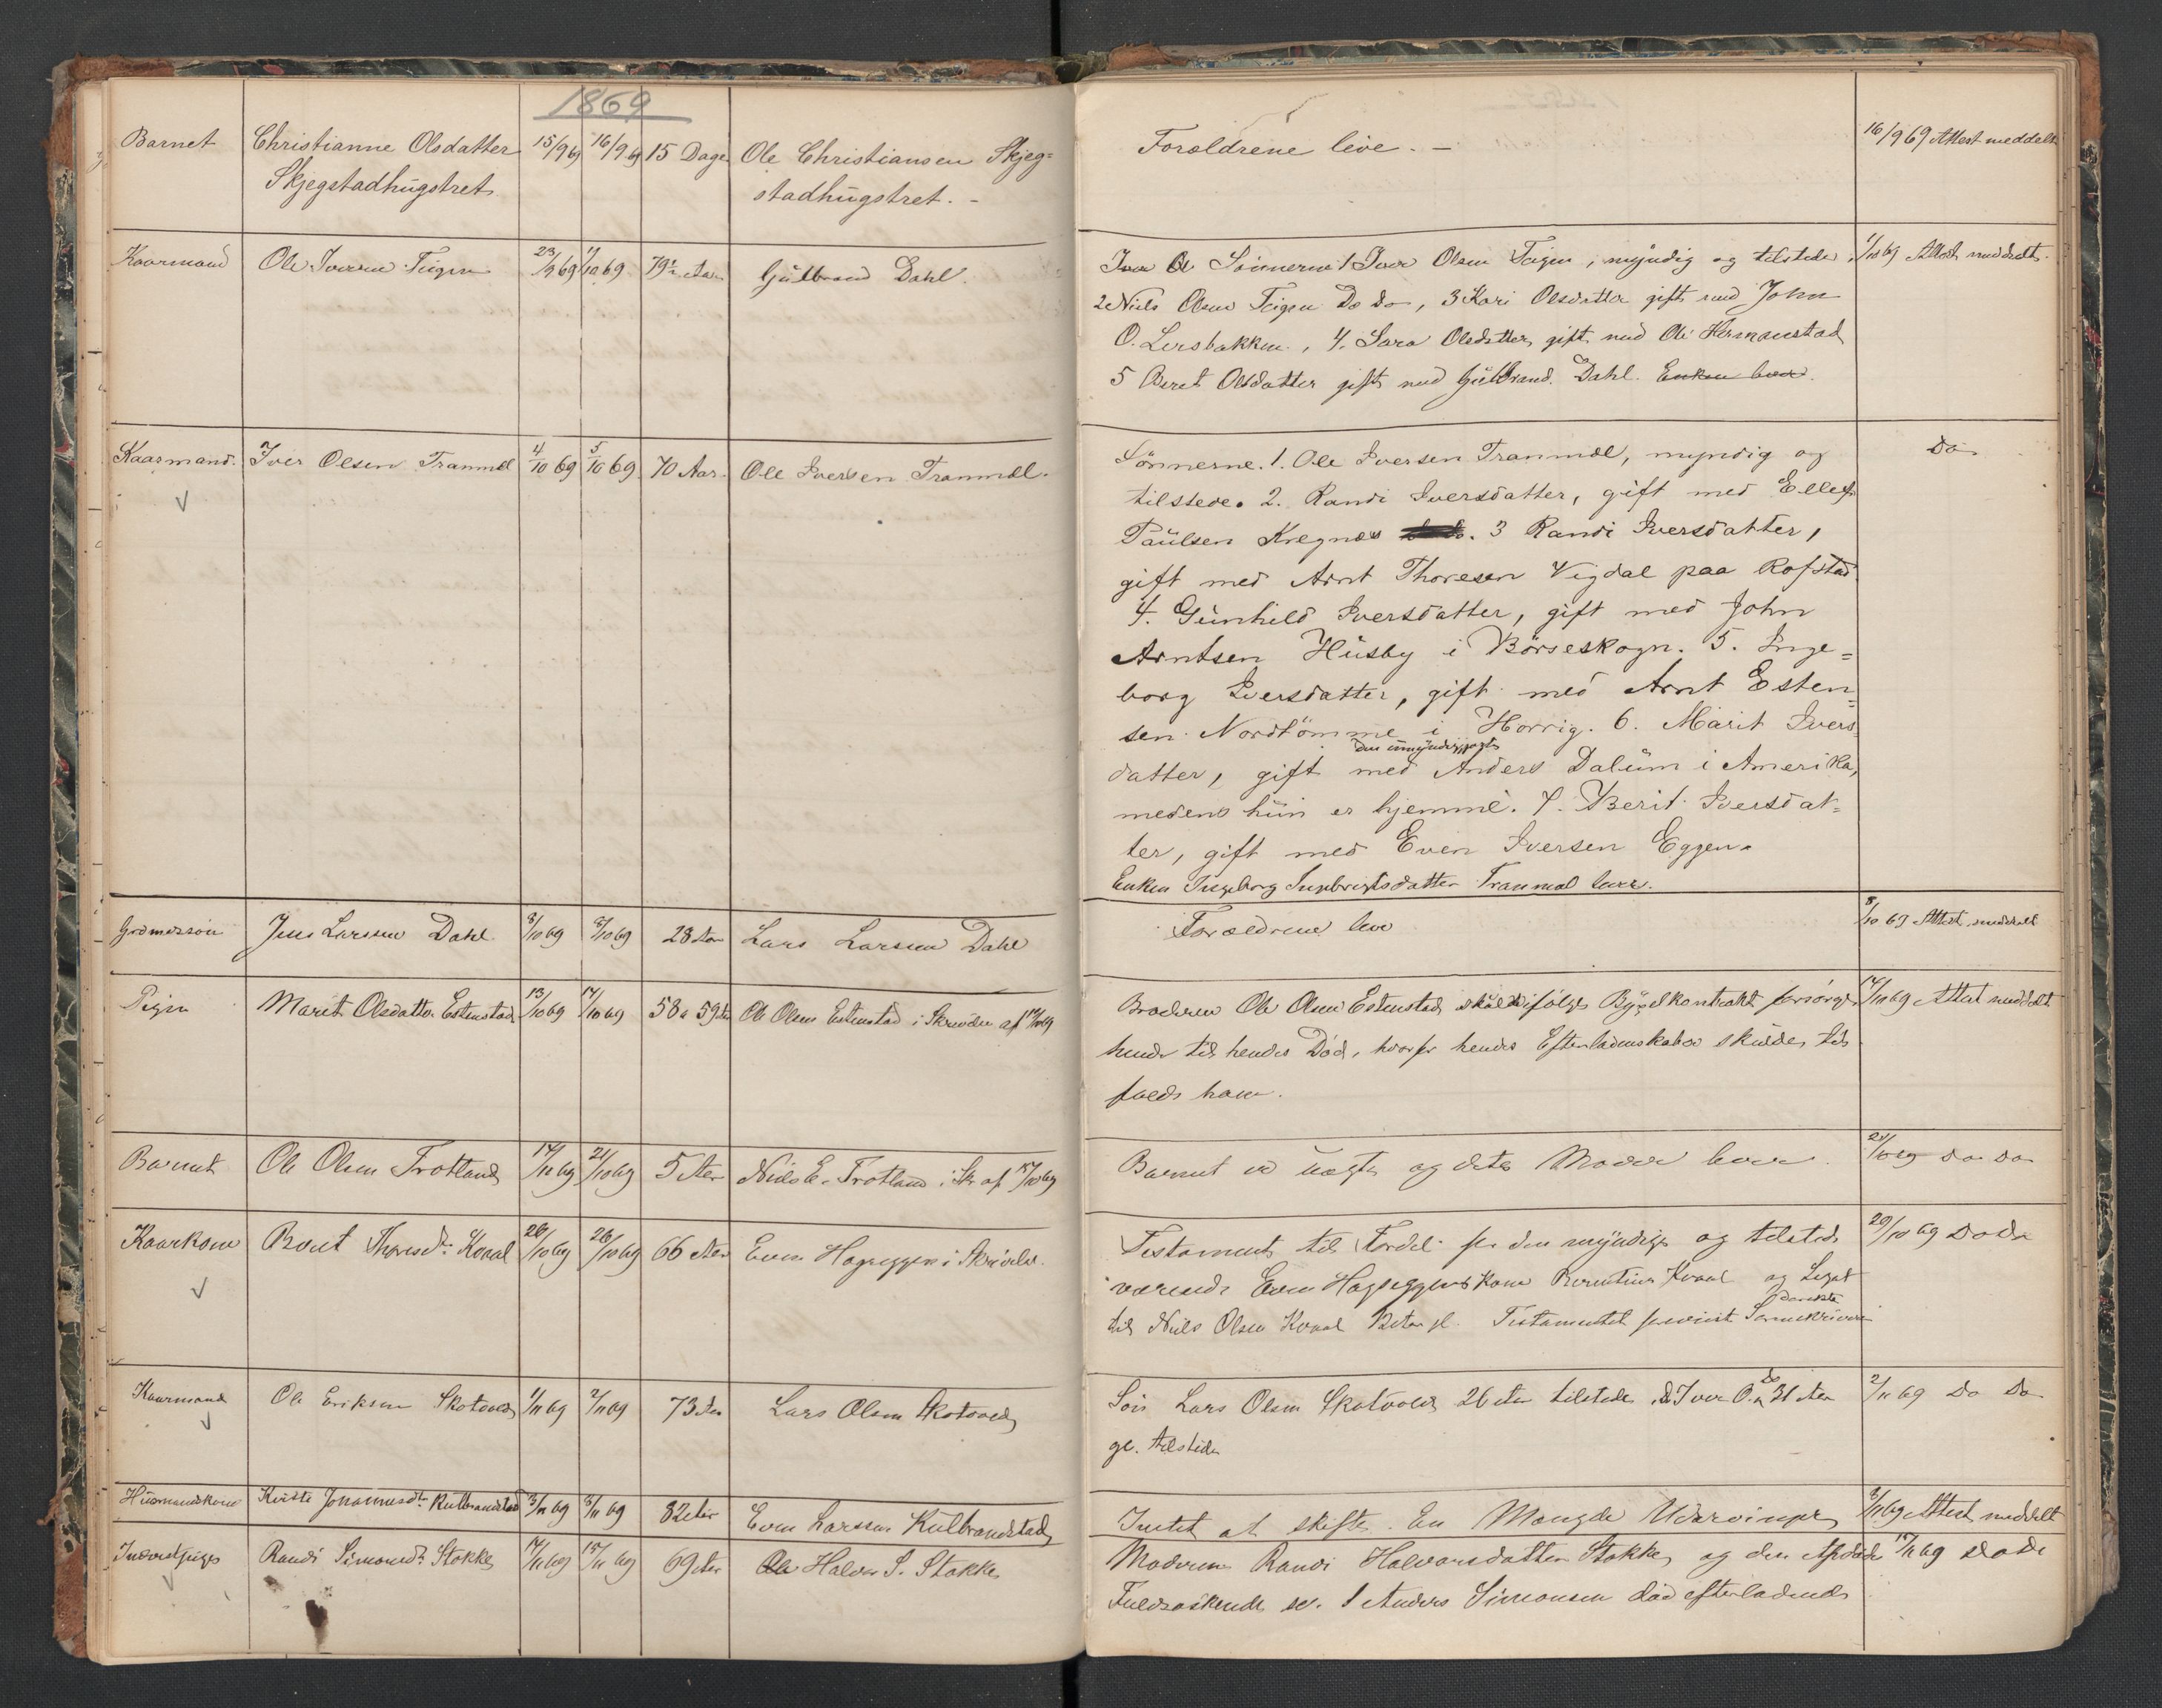 1869
Barnet Christianne Olsdatter 15/9 69 16/9 69 15 Dage Ole Christiansen Skjeg= Forældrene leve. - 16/9 69 Attest meddelt
Skjegstadhugstret stadhugstret. -
Kaarmand Ole Iversen Teigen 23/9 69 1/10 69 79½ Aar Gulbrand Dahl. Sönnerne 1 Iver Olsen Teigen, myndig og tilstede, 1/10 69 Attest meddelt.
2 Niels Olsen Teigen Do do, 3 Kari Olsdatter gift med John
O. Lersbakken, 4. Sara Olsdatter gift med Ole Hermanstad
5 Beret Olsdatter gift med Gulbrand Dahl. Enken lever.
Kaarmand. Iver Olsen Tranmæl 4/10 69 5/10 69 70 Aar. Ole Iversen Tranmæl. Sönnerne. 1. Ole Iversen Tranmæl, myndig og Do
tilstede. 2. Randi Iversdatter, gift med Ellef
Paulsen Kregnes. 3 Randi Iversdatter,
gift med Arnt Thoresen Vigdal paa Rofstad
4. Gunhild Iversdatter, gift med John
Arntsen Husby i Börseskogn. 5. Inge=
borg Iversdatter, gift med Arnt Esten=
sen Nordtömme i Horrig. 6. Marit Ivers
den umyndiggjorte
datter, gift med Anders Dalum i Amerika,
medens hun er hjemme. 7. Berit Iversdat=
ter, gift med Even Iversen Eggen.
Enken Ingeborg Ingebrigtsdatter Tranmæl lever.
Gaardmandssön Jens Larsen Dahl 8/10 69 8/10 69 28 Aar Lars Larsen Dahl Forældrene leve 8/10 69 Attest meddelt
Pigen Marit Olsdatter Estenstad 13/10 69 14/10 69 58 a 59 Aar Ole Olsen Estenstad i Skrivelse af 14/10 69 Broderen Ole Olsen Estenstad skal ifölge Bygselkontrakt forsörge 14/10 69 Attest meddelt
hende til hendes Död, hvorfor hendes Efterladenskaber skulde til
falde ham.
Barnet Ole Olsen Trotland 17/10 69 21/10 69 5 Aar Niels E. Trotland i Skr af 17/10 69 Barnet er uægte og dets Moder lever. 21/10 69 do do
Kaarkone Beret Thoresdr Kvaal 26/10 69 26/10 69 66 Aar Even Hageeggen i Skrivelse. Testament til Fordel for den myndige og tilstede 29/10 69 Dodo
værende Even Hageeggens Kone Berentine Kvaal og Legat
til Niels Olsen Kvaal. Testamentet forevist Sorenskriveren
Kaarmand Ole Eriksen Skotvold 1/11 69 2/11 69 73 Aar Lars Olsen Skotvold Sön Lars Olsen Skotvold 26 Aar tilstede, 2 Iver O. do 21 Aar 2/11 69 Do Do
gl. tilstede
Husmandskone Kirsti Johannesdr Kulbrandstad 3/11 69 8/11 69 82 Aar Even Larssen Kulbrandstad Intet at skifte. En Mængde Udarvinger 8/11 69 Attest meddelt
Inderstpige Randi Simonsdr Stokke 14/11 69 15/11 69 69 Aar Halvor S. Stokke Moderen Randi Halvorsdatter Stokke og den Afdöde 15/11 69 Dodo
Fuldsöskende so. 1 Anders Simonsen död efterladende